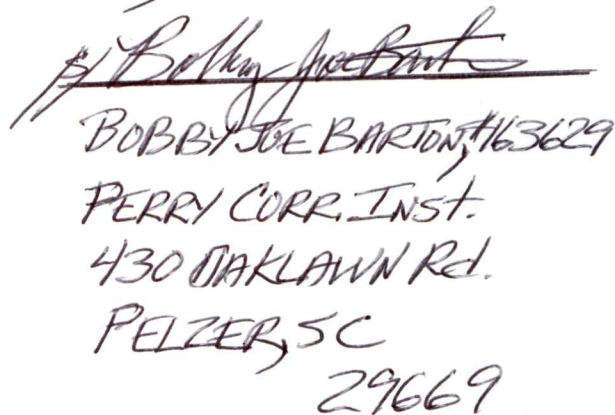 s/ Bobby Joe Barton
BOBBY JOE BARTON, #163629
PERRY CORR. INST.
430 OAKLAWN Rd.
PELZER, SC
29669